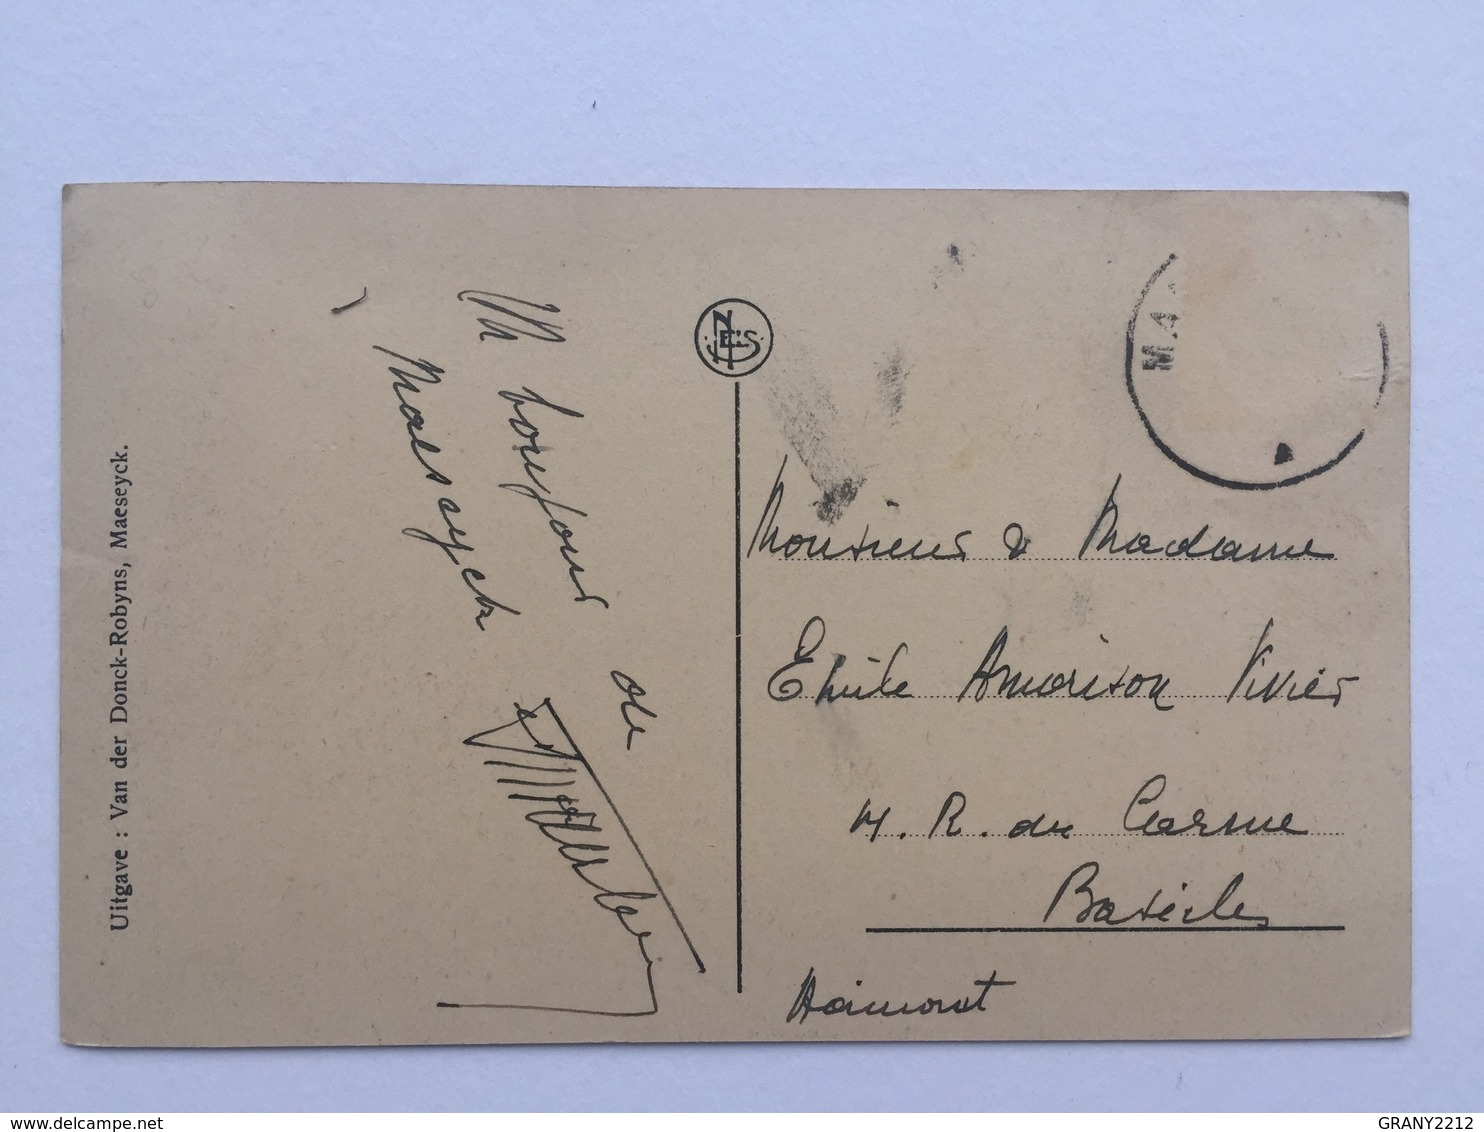 Uitgave : Van der Donck-Robyns, Maeseyck.
Un bonjour de
Maeseyck
NELS
MA
Monsieur & Madame
Emile Amorison Vivier
R. du Carme
Basècles
Hainaut
GRANY2212